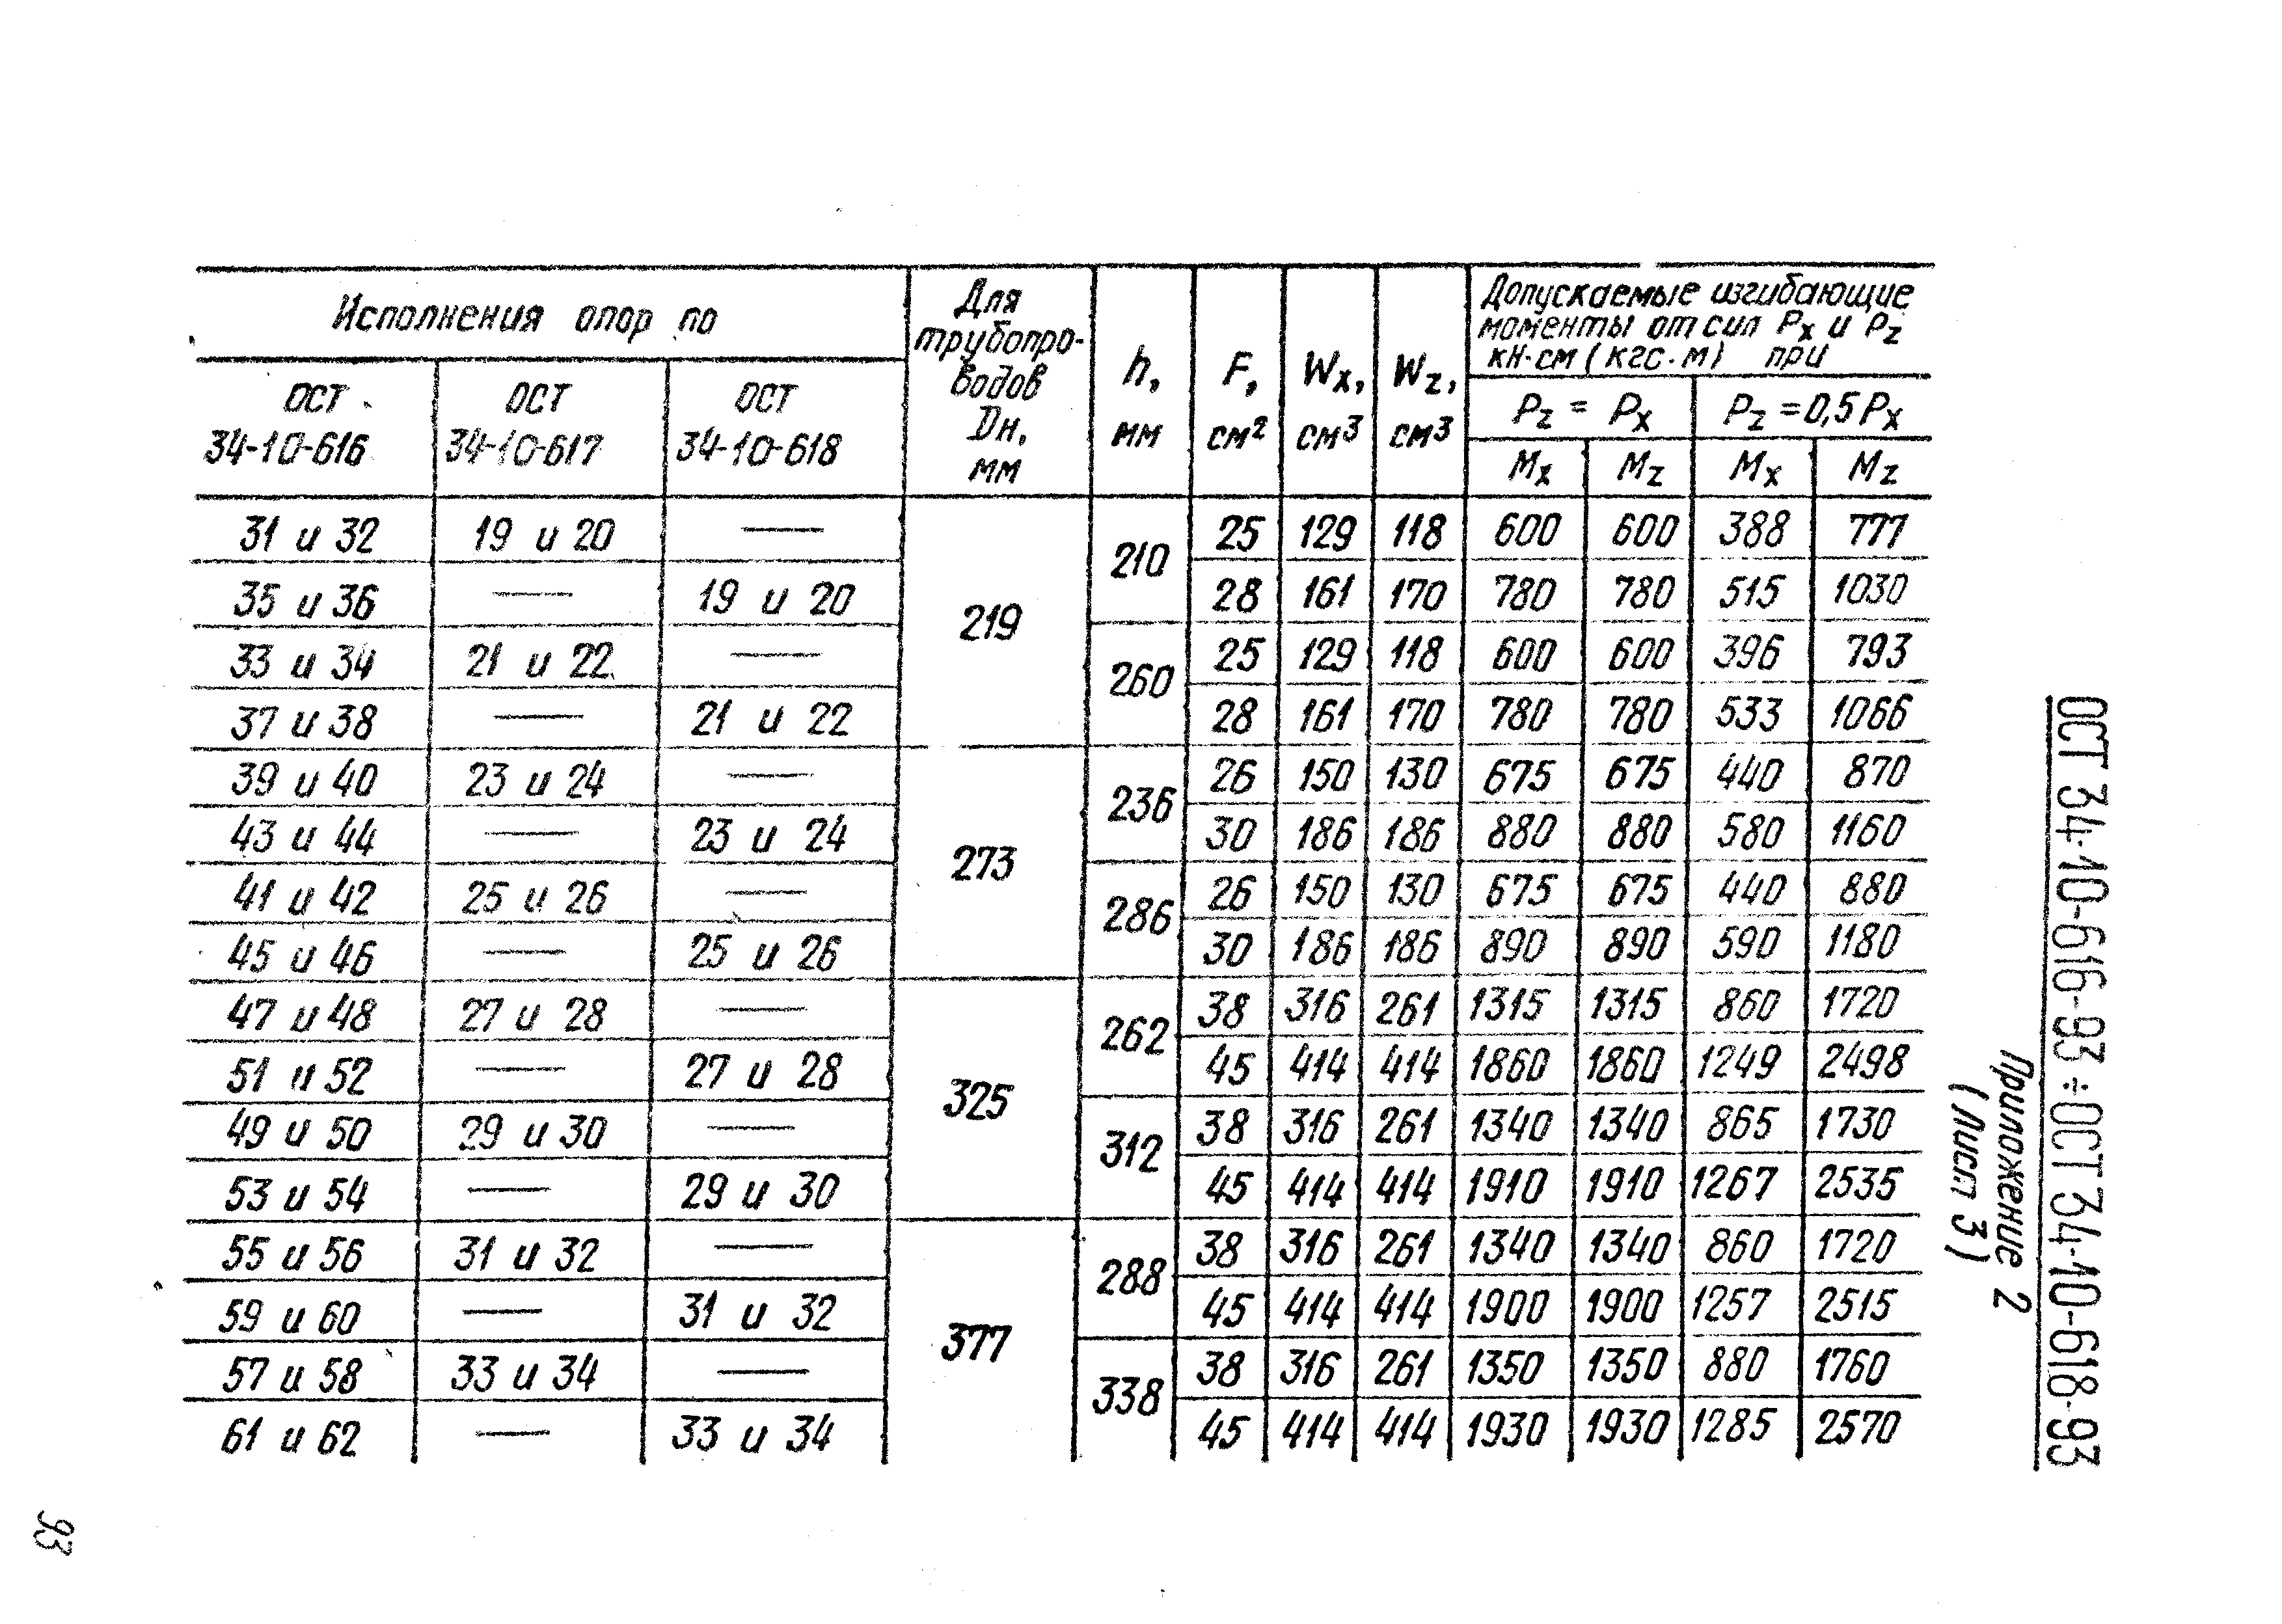 ОСТ 34-10-616-93÷ОСТ 34-10-618-93
Приложение 2
(Лист 3)
Исполнения опор по
Для трубопро-
водов
Dн,
мм
h,
мм
F,
см²
Wx,
см³
Wz,
см³
Допускаемые изгибающие
моменты от сил Px и Pz
кН·см (кгс·м) при
ОСТ
34-10-616
ОСТ
34-10-617
ОСТ
34-10-618
Pz = Px
Pz = 0,5 Px
Mx Mz Mx Mz
31 и 32 19 и 20 — 219 210 25 129 118 600 600 388 777
35 и 36 — 19 и 20 28 161 170 780 780 515 1030
33 и 34 21 и 22 — 260 25 129 118 600 600 396 793
37 и 38 — 21 и 22 28 161 170 780 780 533 1066
39 и 40 23 и 24 — 273 236 26 150 130 675 675 440 870
43 и 44 — 23 и 24 30 186 186 880 880 580 1160
41 и 42 25 и 26 — 286 26 150 130 675 675 440 880
45 и 46 — 25 и 26 30 186 186 890 890 590 1180
47 и 48 27 и 28 — 325 262 38 316 261 1315 1315 860 1720
51 и 52 — 27 и 28 45 414 414 1860 1860 1249 2498
49 и 50 29 и 30 — 312 38 316 261 1340 1340 865 1730
53 и 54 — 29 и 30 45 414 414 1910 1910 1267 2535
55 и 56 31 и 32 — 377 288 38 316 261 1340 1340 860 1720
59 и 60 — 31 и 32 45 414 414 1900 1900 1257 2515
57 и 58 33 и 34 — 338 38 316 261 1350 1350 880 1760
61 и 62 — 33 и 34 45 414 414 1930 1930 1285 2570
93